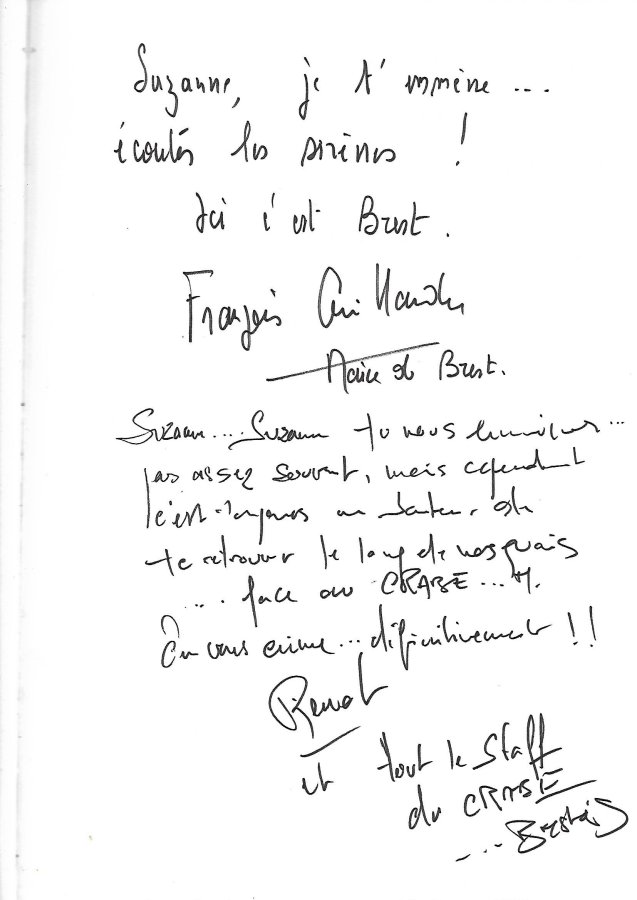 Suzanne, je t'emmène ...
écoutés les sirènes !
Ici c'est Brest.
François Cuillandre
Maire de Brest.
Suzanne.... Suzanne tu nous
pas assez souvent, mais cependant
c'est toujours un de
te retrouver le long de nos quais
.... face au CRABE ....
On vous aime... définitivement !!
et tout le Staff
du CRABE
.... Brestois